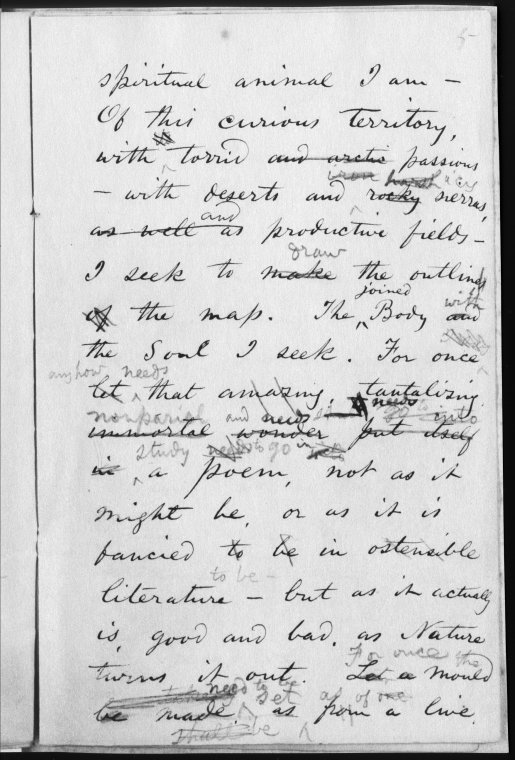 5
spiritual animal I am —
Of this curious territory,
with torrid and arctic passions
iron harsh icy
— with deserts and rocky sierras,
and
as well as productive fields —
draw
I seek to make the outlines
joined with
of the map. The Body and
the Soul I seek. For once
any how needs
let that amazing, tantalizing
nonpariel and needs needs into
immortal wonder put itself
study go in
in a poem, not as it
might be, or as it is
fancied to be in ostensible
to be —
literature — but as it actually
is, good and bad, as Nature
For once the
turns it out. Let a mould
need to be set as of one
be made, as from a live,
shall be